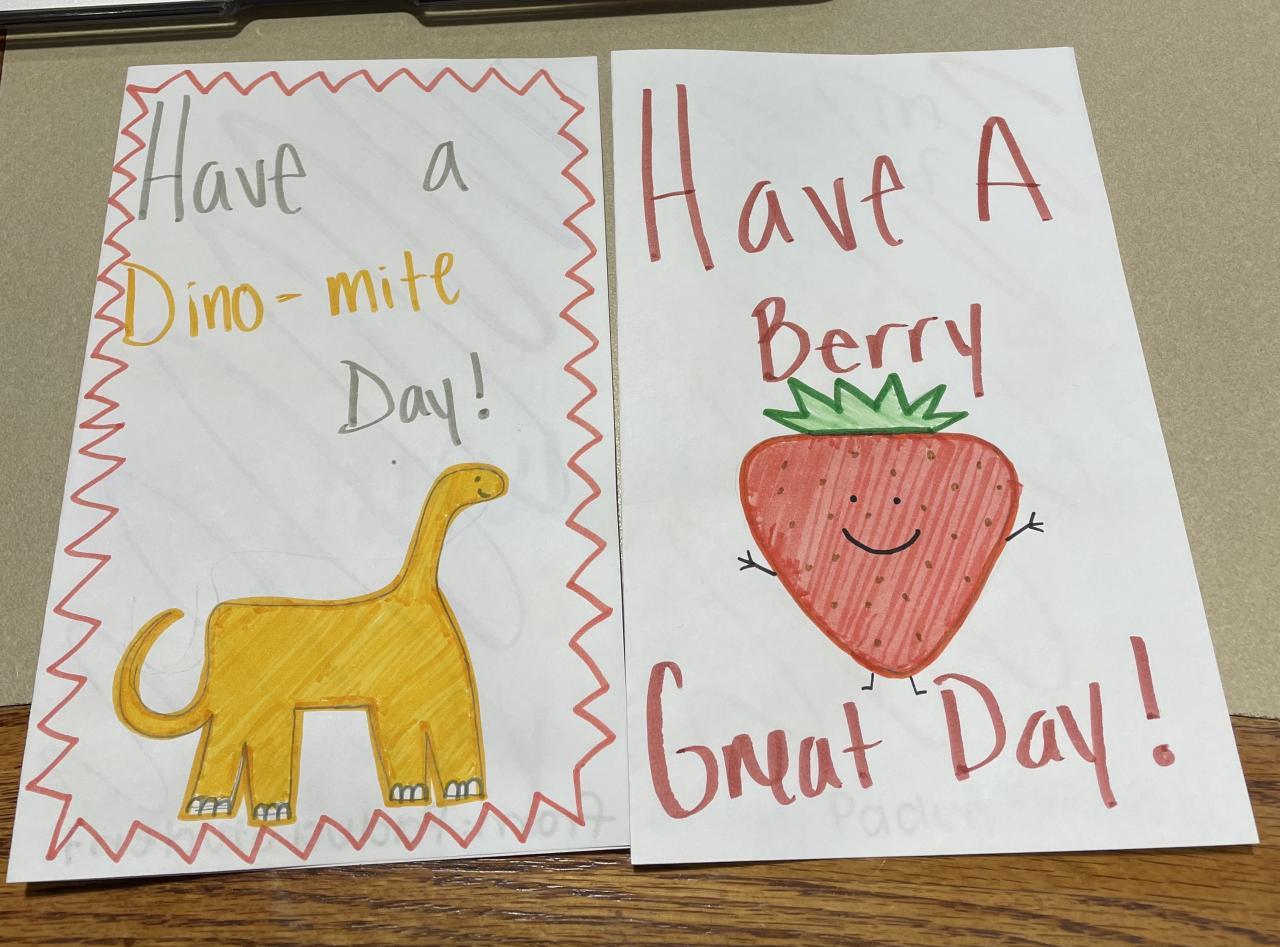 Have a
Dino-mite
Day!
Have A
Berry
Great Day!